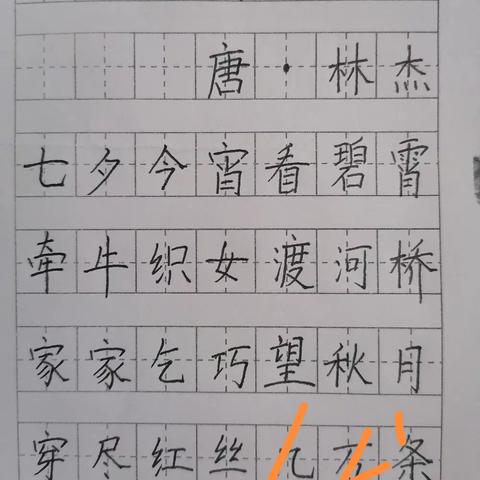 唐·林杰
七夕今宵看碧霄
牵牛织女渡河桥
家家乞巧望秋月
穿尽红丝几万条